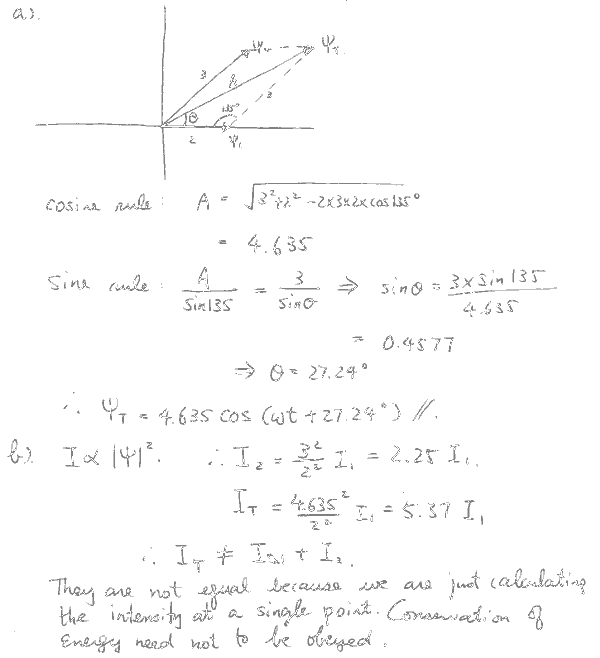 a).
ψ₂ ψ_T
3 A 3
135°
θ
2 ψ₁
cosine rule: A = √(3²+2² -2x3x2xcos135°)
= 4.635
Sine rule: A/sin135 = 3/sinθ ⇒ sinθ = 3xsin135/4.635
= 0.4577
⇒ θ = 27.24°
∴ ψ_T = 4.635 cos (ωt + 27.24°) //.
b). I ∝ |ψ|². ∴ I₂ = 3²/2² I₁ = 2.25 I₁.
I_T = 4.635²/2² I₁ = 5.37 I₁
∴ I_T ≠ I₁ + I₂.
They are not equal because we are just calculating
the intensity at a single point. Conservation of
Energy need not to be obeyed.